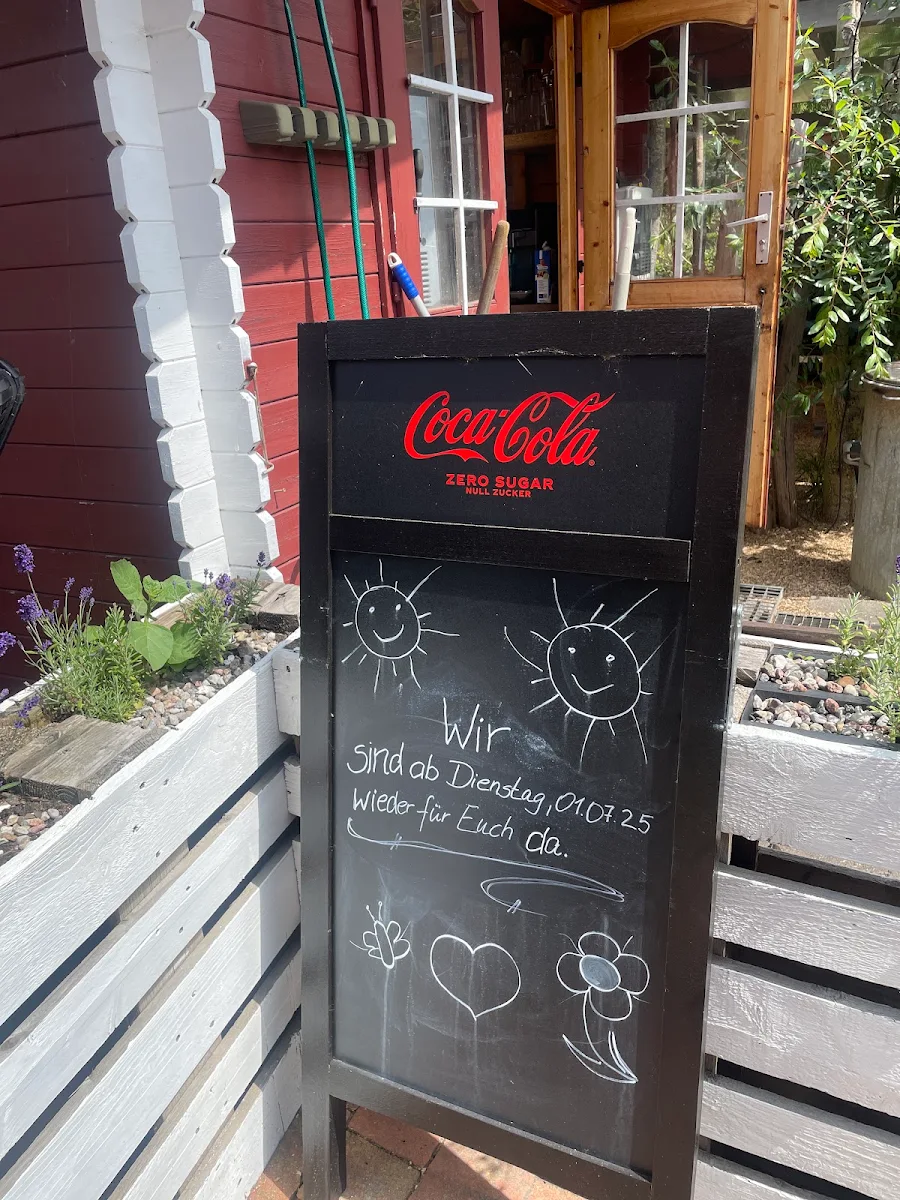 Coca-Cola
ZERO SUGAR
NULL ZUCKER
Wir
sind ab Dienstag, 01.07.25
Wieder für Euch da.